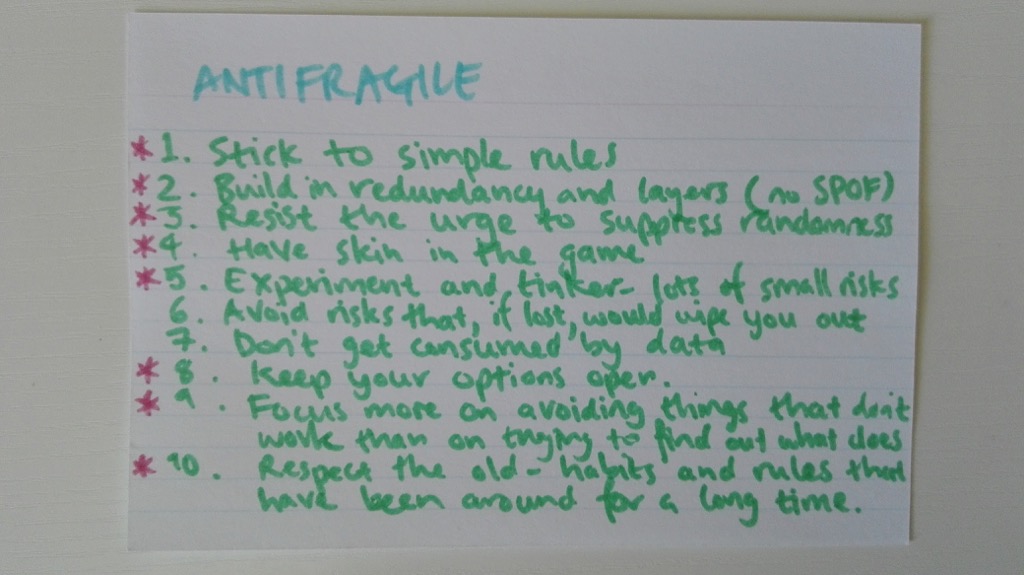 ANTIFRAGILE
* 1. Stick to simple rules
* 2. Build in redundancy and layers (no SPOF)
* 3. Resist the urge to suppress randomness
* 4. Have skin in the game
* 5. Experiment and tinker - lots of small risks
6. Avoid risks that, if lost, would wipe you out
7. Don't get consumed by data
* 8. Keep your options open.
* 9. Focus more on avoiding things that don't
work than on trying to find out what does
* 10. Respect the old - habits and rules that
have been around for a long time.